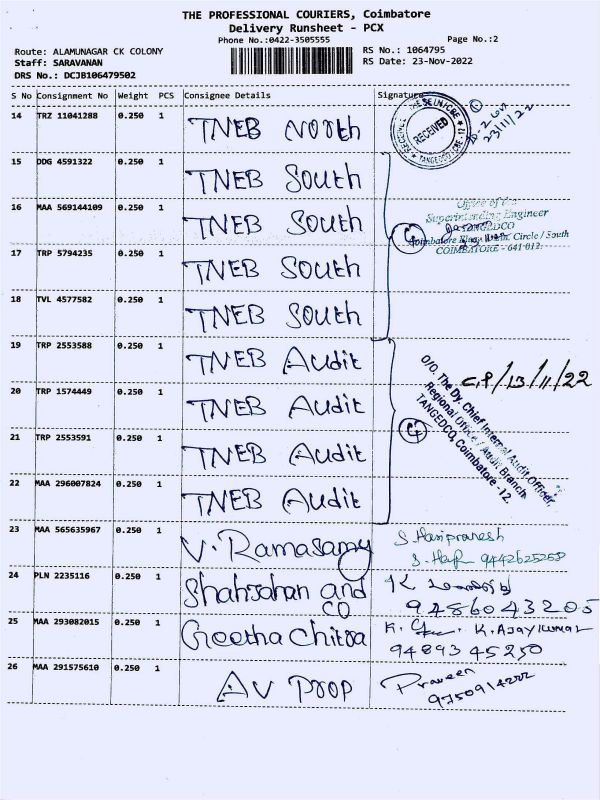 THE PROFESSIONAL COURIERS, Coimbatore
Delivery Runsheet - PCX
Phone No.:0422-3505555
Page No.:2
Route: ALAMUNAGAR CK COLONY
RS No.: 1064795
Staff: SARAVANAN
RS Date: 23-Nov-2022
DRS No.: DCJB106479502
S No Consignment No Weight PCS Consignee Details Signature
14 TRZ 11041288 0.250 1 TNEB North
RECEIVED
TANGEDCO/CBE-12
23/11/22
15 DDG 4591322 0.250 1 TNEB South
16 MAA 569144109 0.250 1 TNEB South
Office of the
Superintending Engineer
TANGEDCO
Coimbatore Elecy. Distn. Circle / South
COIMBATORE - 641 012.
17 TRP 5794235 0.250 1 TNEB South
18 TVL 4577582 0.250 1 TNEB South
19 TRP 2553588 0.250 1 TNEB Audit
O/O. The Dy. Chief Internal Audit Officer,
Regional Office / Audit Branch
TANGEDCO, Coimbatore - 12.
20 TRP 1574449 0.250 1 TNEB Audit
21 TRP 2553591 0.250 1 TNEB Audit
22 MAA 296007824 0.250 1 TNEB Audit
23 MAA 565635967 0.250 1 V. Ramasamy
9442625258
24 PLN 2235116 0.250 1 Shahjahan and
CO
9486043205
25 MAA 293082015 0.250 1 Geetha Chitra K. AJAY KUMAR
9489345250
26 MAA 291575610 0.250 1 AV Prop Praveen
9750914222